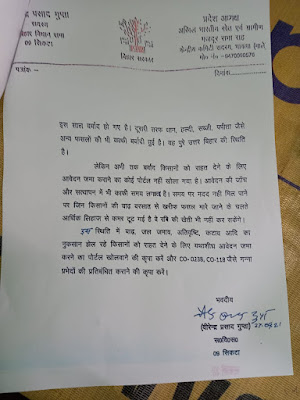 प्रसाद गुप्ता
सदस्य
बिहार विधान सभा
09 सिकटा
बिहार सरकार
प्रदेश अध्यक्ष
अखिल भारतीय खेत एवं ग्रामीण
मजदूर सभा
केन्द्रीय कमिटी सदस्य, भाकपा (माले)
पत्रांक-
दिनांक
इस साल बर्बाद हो गए है। दूसरी तरफ धान, एल्टी, सब्जी, पपीता जैसे
अन्य फसलों की भी काफी बर्बादी हुई है। यह पुरे उत्तर बिहार की स्थिति
है।
लेकिन अभी तक बर्बाद किसानों को राहत देने के लिए
आवेदन जमा कराने का कोई पोर्टल नहीं खोला गया है। आवेदन की जाँच
और सत्यापन में भी काफी समय लगता है। समय पर मदद नहीं मिल पाने
पर जिन किसानों की बाढ़ बरसात से खरीफ फसल मारे जाने के चलते
आर्थिक लिहाज से कमर टूट गई है वे रबि की खेती भी नहीं कर सकेंगे।
इस स्थिति में बाढ़, जल जमाव, अतिवृष्टि, कटाव आदि का
नुकसान झेल रहे किसानों को राहत देने के लिए यथाशीघ्र आवेदन जमा
करने का पोर्टल खोलवाने की कृपा करें और CO-0238, CO-118 जैसे गन्ना
प्रभेदों की प्रतिबंधित कराने की कृपा करें।
भवदीय
(वीरेन्द्र प्रसाद गुप्ता)
स०वि०स०
09 सिकटा